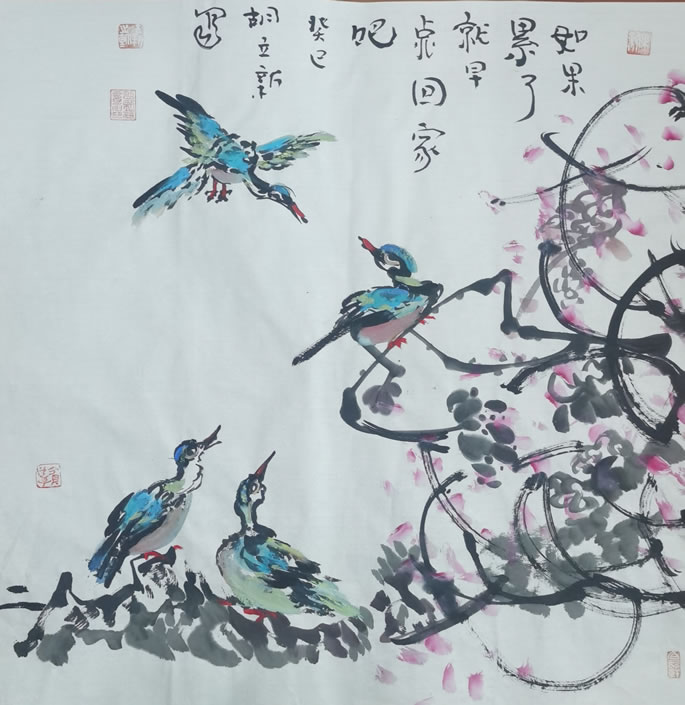 如果
累了
就早
点回家
吧
癸巳
胡立新